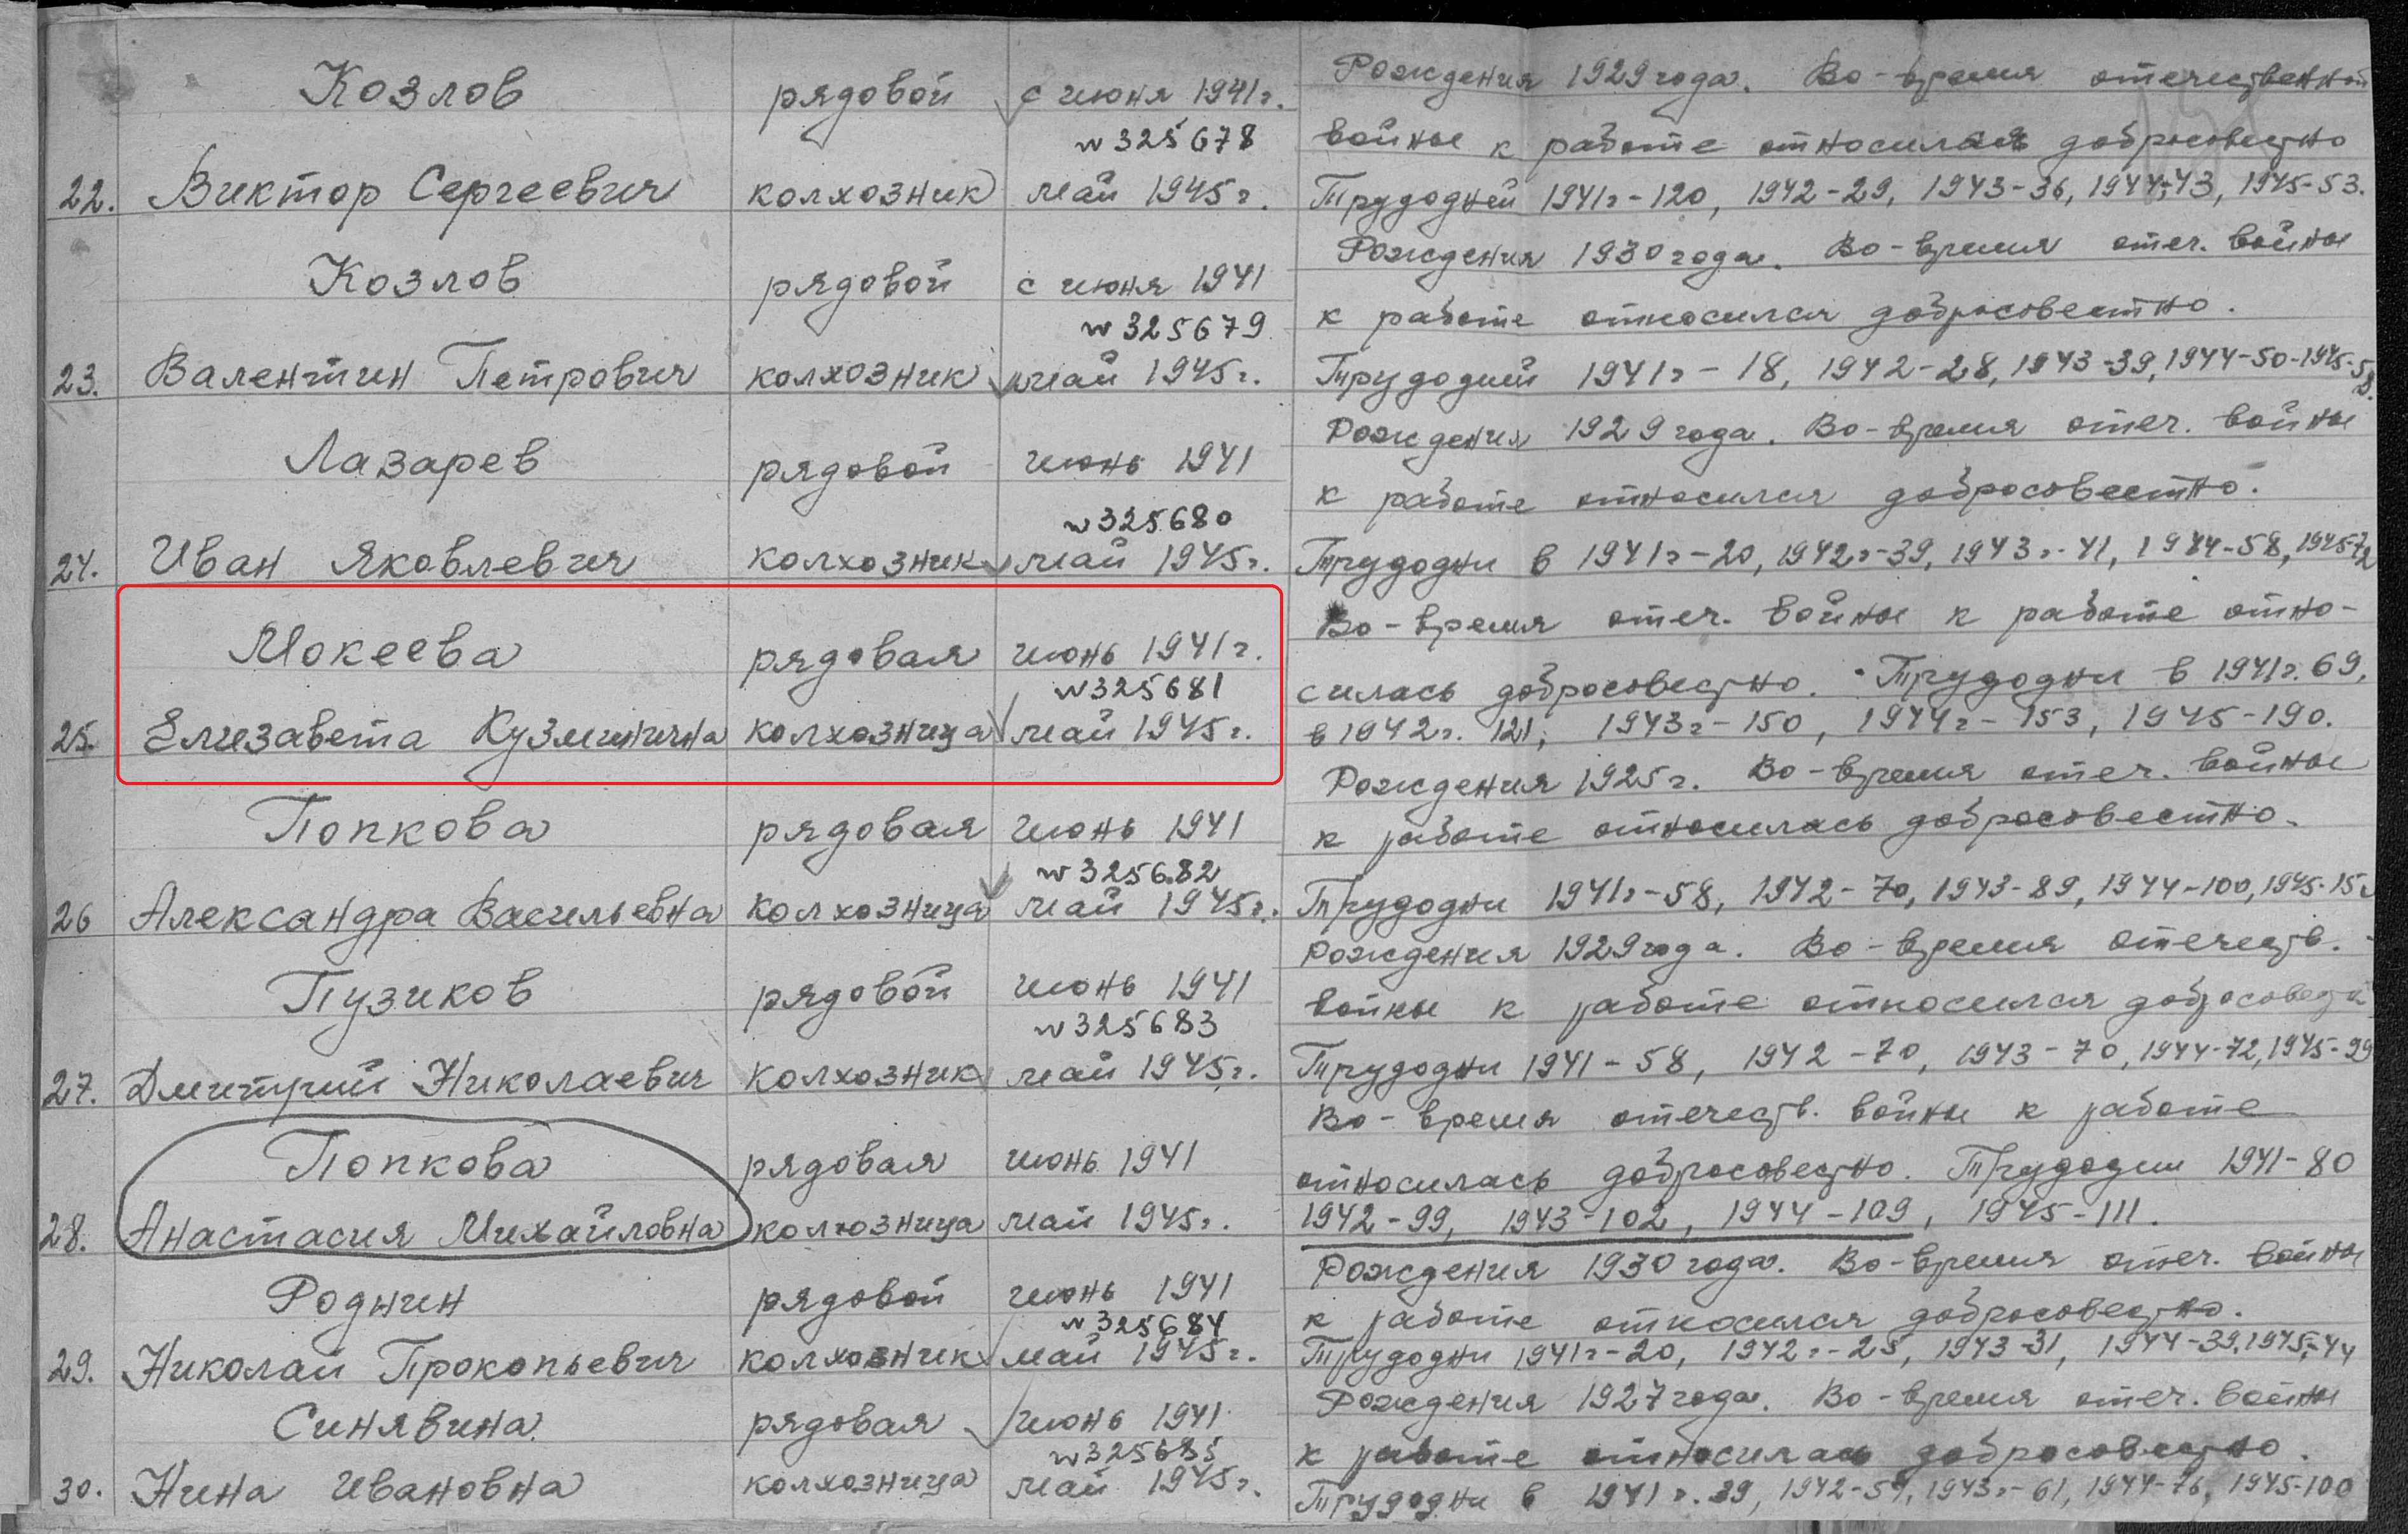 Козлов рядовой с июня 1941г. Рождения 1929 года. Во-время отечественной
№ 325678 войны к работе относился добросовестно
22. Виктор Сергеевич колхозник май 1945г. Трудодней 1941г-120, 1942-29, 1943-36, 1944-43, 1945-53.
Козлов рядовой с июня 1941 Рождения 1930 года. Во-время отеч. войны
№ 325679 к работе относился добросовестно.
23. Валентин Петрович колхозник май 1945г. Трудодней 1941г - 18, 1942-28, 1943-39, 1944-50-1945-58.
Лазарев рядовой июнь 1941 Рождения 1929 года. Во-время отеч. войны
№ 325680 к работе относился добросовестно.
24. Иван Яковлевич колхозник май 1945г. Трудодни в 1941г-20, 1942г-39, 1943г-41, 1944-58, 1945-72
Во-время отеч. войны к работе отно-
Мокеева рядовая июнь 1941г.
№ 325681 силась добросовестно. Трудодни в 1941г. 69,
25. Елизавета Кузминична колхозница май 1945г. в 1942г. 121, 1943г-150, 1944г-153, 1945-190.
Рождения 1925г. Во-время отеч. войны
Попкова рядовая июнь 1941 к работе относилась добросовестно.
№ 325682
26 Александра Васильевна колхозница май 1945г. Трудодни 1941г-58, 1942-70, 1943-89, 1944-100,
Рождения 1929 года. Во-время отечеств.
Пузиков рядовой июнь 1941 войны к работе относился
№ 325683
27. Дмитрий Николаевич колхозник май 1945г. Трудодни 1941-58, 1942-70, 1943-70, 1944-72, 1945-99
Во-время отечеств. войны к работе
Попкова рядовая июнь 1941 относилась добросовестно. Трудодни 1941-80
28. Анастасия Михайловна колхозница май 1945г. 1942-99, 1943-102, 1944-109, 1945-111.
Рождения 1930 года. Во-время отеч. войны
Роднин рядовой июнь 1941 к работе относился добросовестно.
№ 325684
29. Николай Прокопьевич колхозник май 1945г. Трудодни 1941г-20, 1942г-25, 1943-31, 1944-39, 1945-44
Рождения 1927 года. Во-время отеч. войны
Синявина рядовая июнь 1941 к работе относилась добросовестно.
№ 325685
30. Нина Ивановна колхозница май 1945г. Трудодни в 1941г. 39, 1942-59, 1943г-61, 1944-76, 1945-100